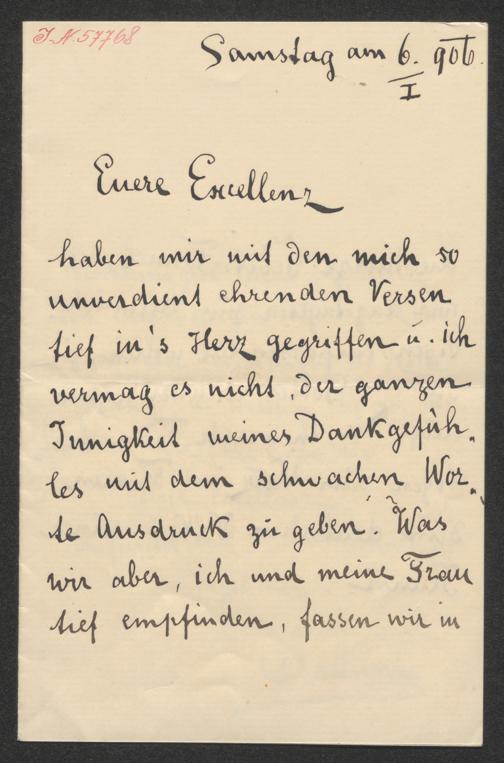 J.N. 57768
Samstag am 6. 906.
I
Euere Excellenz
haben mir mit den mich so
unverdient ehrenden Versen
tief in's Herz gegriffen u. ich
vermag es nicht, der ganzen
Innigkeit meines Dankgefüh-
les mit dem schwachen Wor-
te Ausdruck zu geben. Was
wir aber, ich und meine Frau
tief empfinden, fassen wir in